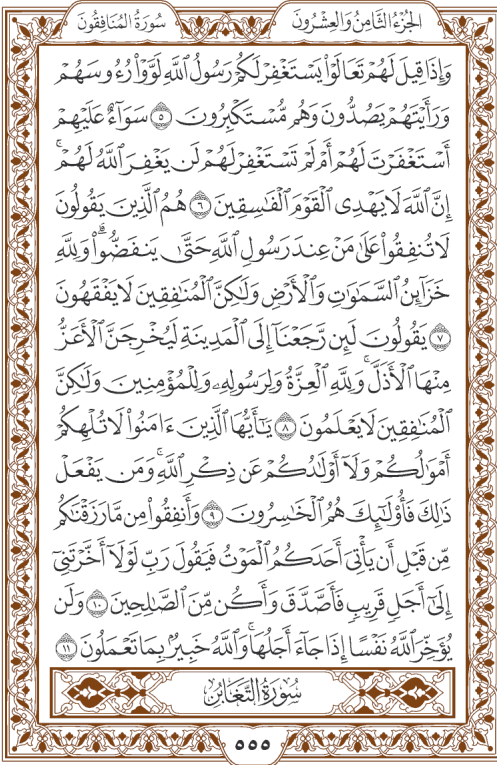 سُورَةُ المُنَافِقُونَ
الجُزْءُ الثَّامِنُ وَالعِشْرُونَ
وَإِذَا قِيلَ لَهُمْ تَعَالَوْاْ يَسْتَغْفِرْ لَكُمْ رَسُولُ ٱللَّهِ لَوَّوْاْ رُءُوسَهُمْ
وَرَأَيْتَهُمْ يَصُدُّونَ وَهُم مُّسْتَكْبِرُونَ ٥ سَوَآءٌ عَلَيْهِمْ
أَسْتَغْفَرْتَ لَهُمْ أَمْ لَمْ تَسْتَغْفِرْ لَهُمْ لَن يَغْفِرَ ٱللَّهُ لَهُمْۚ
إِنَّ ٱللَّهَ لَا يَهْدِى ٱلْقَوْمَ ٱلْفَٰسِقِينَ ٦ هُمُ ٱلَّذِينَ يَقُولُونَ
لَا تُنفِقُواْ عَلَىٰ مَنْ عِندَ رَسُولِ ٱللَّهِ حَتَّىٰ يَنفَضُّواْۗ وَلِلَّهِ
خَزَآئِنُ ٱلسَّمَٰوَٰتِ وَٱلْأَرْضِ وَلَٰكِنَّ ٱلْمُنَٰفِقِينَ لَا يَفْقَهُونَ
٧ يَقُولُونَ لَئِن رَّجَعْنَآ إِلَى ٱلْمَدِينَةِ لَيُخْرِجَنَّ ٱلْأَعَزُّ
مِنْهَا ٱلْأَذَلَّۚ وَلِلَّهِ ٱلْعِزَّةُ وَلِرَسُولِهِۦ وَلِلْمُؤْمِنِينَ وَلَٰكِنَّ
ٱلْمُنَٰفِقِينَ لَا يَعْلَمُونَ ٨ يَٰٓأَيُّهَا ٱلَّذِينَ ءَامَنُواْ لَا تُلْهِكُمْ
أَمْوَٰلُكُمْ وَلَآ أَوْلَٰدُكُمْ عَن ذِكْرِ ٱللَّهِۚ وَمَن يَفْعَلْ
ذَٰلِكَ فَأُوْلَٰٓئِكَ هُمُ ٱلْخَٰسِرُونَ ٩ وَأَنفِقُواْ مِن مَّا رَزَقْنَٰكُم
مِّن قَبْلِ أَن يَأْتِىَ أَحَدَكُمُ ٱلْمَوْتُ فَيَقُولَ رَبِّ لَوْلَآ أَخَّرْتَنِىٓ
إِلَىٰٓ أَجَلٍ قَرِيبٍ فَأَصَّدَّقَ وَأَكُن مِّنَ ٱلصَّٰلِحِينَ ١٠ وَلَن
يُؤَخِّرَ ٱللَّهُ نَفْسًا إِذَا جَآءَ أَجَلُهَاۚ وَٱللَّهُ خَبِيرٌۢ بِمَا تَعْمَلُونَ ١١
سُورَةُ التَّغَابُنِ
٥٥٥